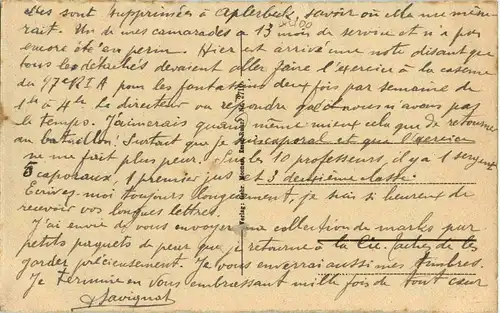 elles sont supprimées à Aplerbeck, savoir où elle me mène-
rait. Un de mes camarades a 13 mois de service et n'a pas
encore été en perm. Hier est arrivée une note disant que
tous les détachés devaient aller faire l'exercice à la caserne
du 47e RIA pour les fantassins deux fois par semaine de
1h à 4h. Le directeur va répondre que nous n'avons pas
le temps. J'aimerais quand même mieux cela que de retourner
au bataillon. Surtout que je suis caporal et que l'exercice
ne me fait plus peur. Sur les 10 professeurs, il y a 1 sergent
5 caporaux, 1 premier jus et 3 deuxième classe.
Écrivez-moi toujours longuement, je suis si heureux de
recevoir vos longues lettres.
J'ai envie de vous envoyer une collection de marks par
petits paquets de peur que je retourne à la Cie. Tâchez de les
garder précieusement. Je vous enverrai aussi mes timbres.
Je termine en vous embrassant mille fois de tout cœur
Savignat
Verlag: Gebr.